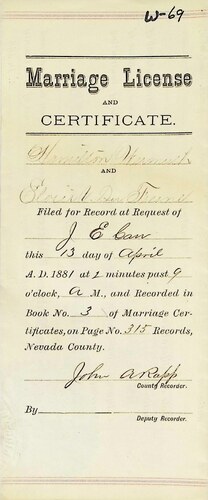 W-69
Marriage License
AND
CERTIFICATE.
Hamilton
AND
Filed for Record at Request of
J E Carr
this 13 day of April
A. D. 1881 at 2 minutes past 9
o'clock, A M., and Recorded in
Book No. 3 of Marriage Cer-
tificates, on Page No. 315 Records,
Nevada County.
John A Rapp
County Recorder.
By
Deputy Recorder.